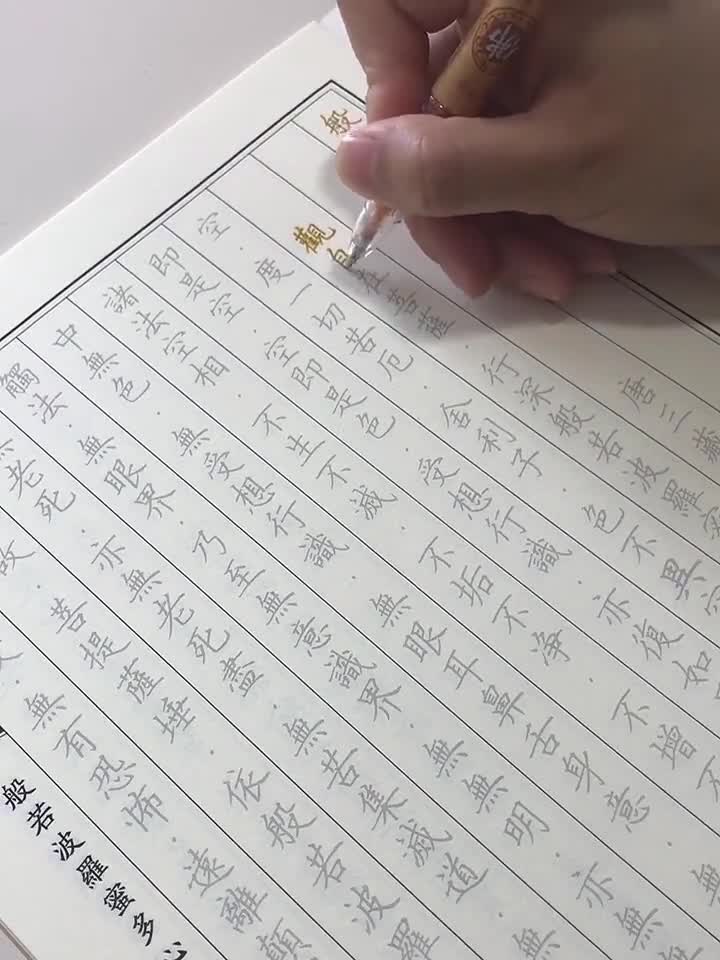 般
唐三藏
觀自在菩薩．行深般若波羅蜜
空．度一切苦厄．舍利子．色不異空
即是空．空即是色．受想行識．亦復如
諸法空相．不生不滅．不垢不淨．不增不
中無色．無受想行識．無眼耳鼻舌身意．無
觸法．無眼界．乃至無意識界．無無明．亦無
無老死．亦無老死盡．無苦集滅道．無
故．菩提薩埵．依般若波羅
無有恐怖．遠離顛
般若波羅蜜多心